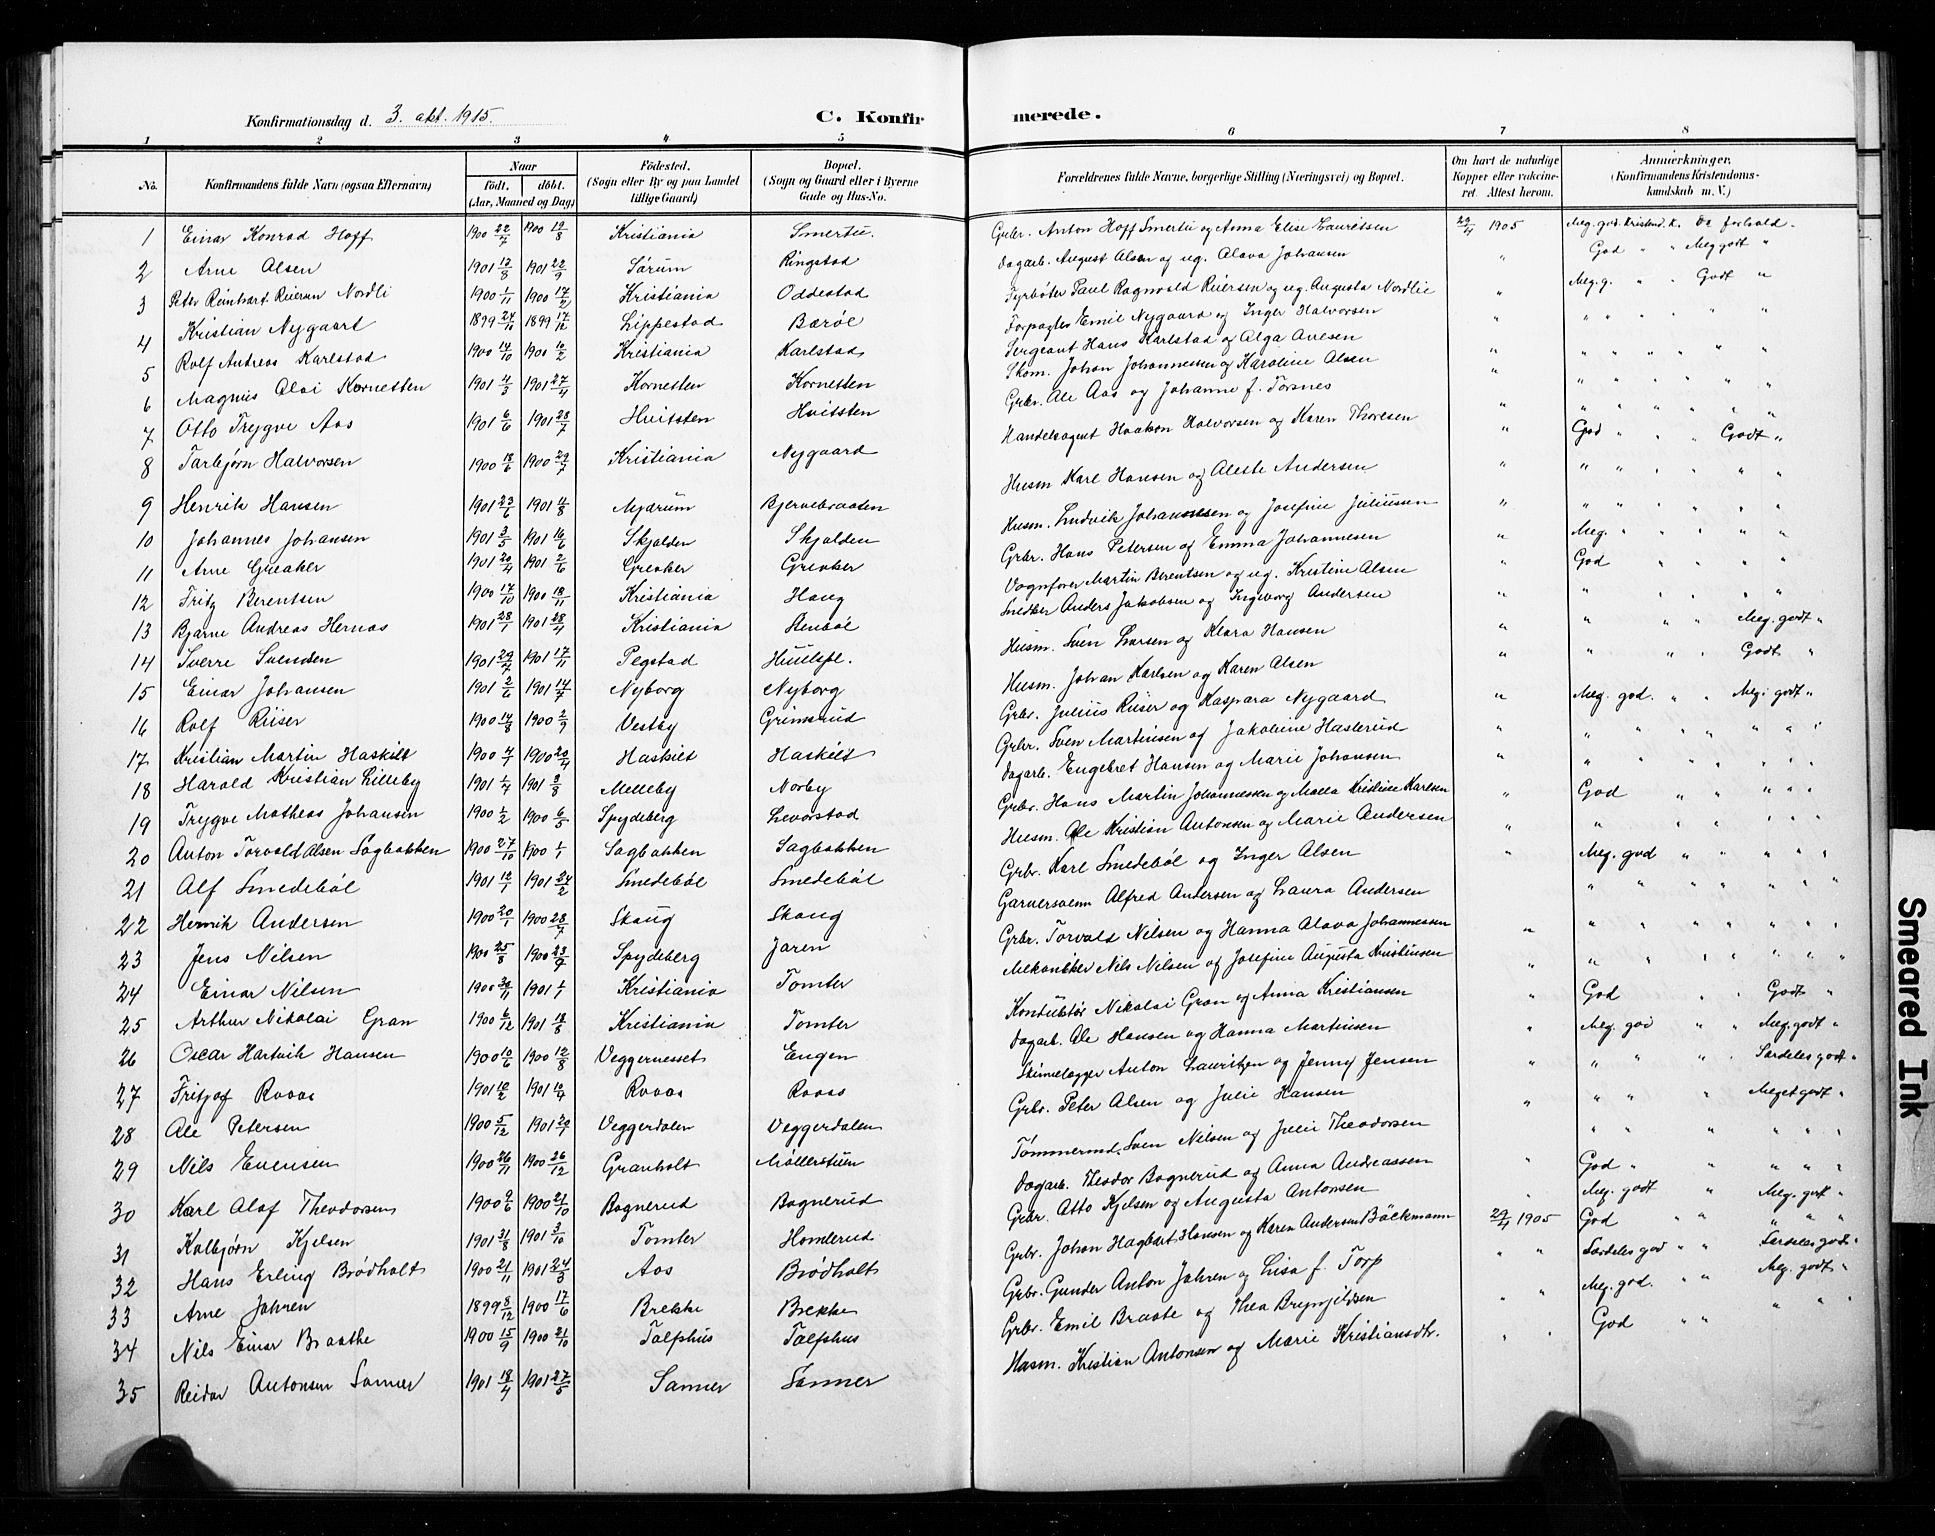 Konfirmationsdag d. 3. okt. 1915.
C. Konfir
merede.
1 2 3 4 5 6 7 8
No.
Konfirmandens fulde Navn (ogsaa Efternavn)
Naar
födt. döbt.
(Aar, Maaned og Dag)
Födested.
(Sogn eller By og paa Landet
tillige Gaard)
Bopæl.
(Sogn og Gaard eller i Byerne
Gade og Hus-No.
Forældrenes fulde Navne, borgerlige Stilling (Næringsvei) og Bopæl.
Om havt de naturlige
Kopper eller vakcine-
ret. Attest herom.
Anmerkninger.
(Konfirmandens Kristendoms-
kundskab m. V.)
1 Einar Konrad Hoff 1900 22/7 1900 19/8 Kristiania Smertu. Grbr. Anton Hoff Smertu og Anna Elise Lauretsen 29/4 1905 Meg. god. Kristend. k.
2 Arne Olsen 1901 13/8 1901 22/9 Sørum Ringstad Dagarb. August Olsen og ug. Olava Johansen " God " " Meg godt "
3 Peter Reinhart Reiersen Nordli 1900 1/11 1900 17/2 Kristiania Oddestad Fyrbøter Paul Ragnvald Reiersen og ug. Augusta Nordlie " Meg. g. " " Godt "
4 Kristian Nygaart 1899 24/10 1899 17/12 Lippestad Bærøe Forpagter Emil Nygaard og Inger Halvorsen "
5 Rolf Andreas Karlstad 1900 14/10 1900 10/2 Kristiania Karlstad Sergeant Hans Karlstad og Olga "
6 Magnus Olai Kornetten 1901 4/3 1901 27/4 Kornetten Kornetten Skom. Johan Johannessen og Karoline Olsen "
7 Otto Trygve Aas 1901 6/6 1901 28/7 Hvitsten Hvitsten Grbr. Ole Aas og Johanne f. Torsnes "
8 Torbjørn Halvorsen 1900 18/6 1900 29/7 Kristiania Nygaard Handelsagent Haakon Halvorsen og Karen Thoresen " God " " " Godt "
9 Henrik Hansen 1901 23/6 1901 4/8 Mjærum Bjervebraaten Husm Karl Hansen og Aleste Andersen "
10 Johannes Johansen 1901 3/5 1901 16/6 Skjolden Skjolden Husm. Ludvik Johannesen og Josefine Juliussen "
11 Arne Greaker 1901 20/4 1901 2/6 Greaker Greaker Grbr. Hans Petersen og Emma Johannesen " Meg.
12 Fritz Berentsen 1900 17/10 1900 18/11 Kristiania Haug Vognfører Martin Berentsen og ug. Kristine Olsen " God
13 Bjarne Andreas Hernæs 1901 28/1 1901 28/4 Kristiania Stenbøl Snedker Anders Jakobsen og Ingeborg Andersen "
14 Sverre Svendsen 1901 29/7 1901 17/11 Pegstad Husm. Sven Larsen og Klara Hansen " Meg. godt "
15 Einar Johansen 1901 2/6 1901 14/7 Nyborg Nyborg Husm. Johan Karlsen og Karen Olsen " Godt "
16 Rolf Riiser 1900 14/8 1900 2/9 Vestby Grimsrud Grbr. Julius Riiser og Kaspara Nygaard " Meg. god. " " Meg. godt "
17 Kristian Martin Haskilt 1900 4/7 1900 20/4 Haskilt Haskilt Grbr. Sven Martinsen og Jakobine Haslerud "
18 Harald Kristian Lilleby 1901 1/4 1901 8/8 Melleby Norby Dagarb. Engebret Hansen og Marie Johansen "
19 Trygve Matheas Johansen 1900 1/2 1900 6/5 Spydeberg Levorstad Grbr. Hans Martin Johannessen og Kristine Karlsen " God
20 Anton Torvald Olsen Sagbakken 1900 27/10 1900 1/1 Sagbakken Sagbakken Husm. Ole Kristian Antonsen og Marie Andersen "
21 Alf Smedebøl 1901 12/1 1901 24/2 Smedebøl Smedebøl Grbr. Karl Smedebøl og Inger Olsen " Meg. god
22 Henrik Andersen 1900 20/1 1900 28/7 Skaug Skaug Garversvenn Alfred Andersen og Laura Andersen
23 Jens Nilsen 1900 25/8 1900 23/9 Spydeberg Jaren Grbr. Torvald Nilsen og Hanna Olava Johannessen "
24 Einar Nilsen 1900 30/11 1901 1/1 Kristiania Tomter Mekaniker Nils Nilsen og Josefine Augusta Kristensen "
25 Arthur Nikolai Gran 1900 6/12 1901 18/8 Kristiania Tomter Konduktør Nikolai Gran og Anna Kristiansen " God " " Godt "
26 Oscar Hartvik Hansen 1900 10/6 1900 12/8 Veggernesset Engen Dagarb. Ole Hansen og Hanna Martinsen " Meg. god " " Meg. godt "
27 Fritjof Raaas 1901 10/2 1901 10/4 Raaas Raaas Skinnelægger Anton Lauritzen og Jenny Jensen " Særdeles godt "
28 Ole Petersen 1900 5/12 1901 20/1 Veggerdalen Veggerdalen Grbr. Peter Olsen og Julie Hansen " Meget godt "
29 Nils Evensen 1900 26/11 1900 26/12 Granholt Møllerstuen Tømmermd. Sven Nilsen og Julie Theodorsen
30 Karl Olaf Theodorsen 1900 2/6 1900 21/10 Bagnerud Bagnerud Dagarb. Theodor Bagnerud og Anna Andreassen " God
31 Kolbjørn Kjelsen 1901 31/8 1901 3/10 Tomter Homlerud Grbr. Otto Kjelsen og Augusta Antonsen Meg. godt " Meg. godt "
32 Hans Erling Brødholt 1900 21/11 1901 24/3 Aas Brødholt Grbr. Johan Hagbart Hansen og Karen Andersen Bäckmann 29/4 1905 God
33 Arne Jahren 1899 8/12 1900 17/6 Brekke Brekke Grbr. Gunder Anton Jahren og Lisa f. Torp " " Særdeles god " " Særdeles godt "
34 Nils Einar Braathe 1900 15/9 1900 21/10 Talphus Talphus Grbr. Emil Braate og Thea Brynjildsen " " Meg. god. " " Meg. godt "
35 Reidar Antonsen Sanner 1901 18/4 1901 27/5 Sanner Sanner Husm. Kristian Antonsen og Marie Kristiansdtr. " " God " "
Smeared Ink